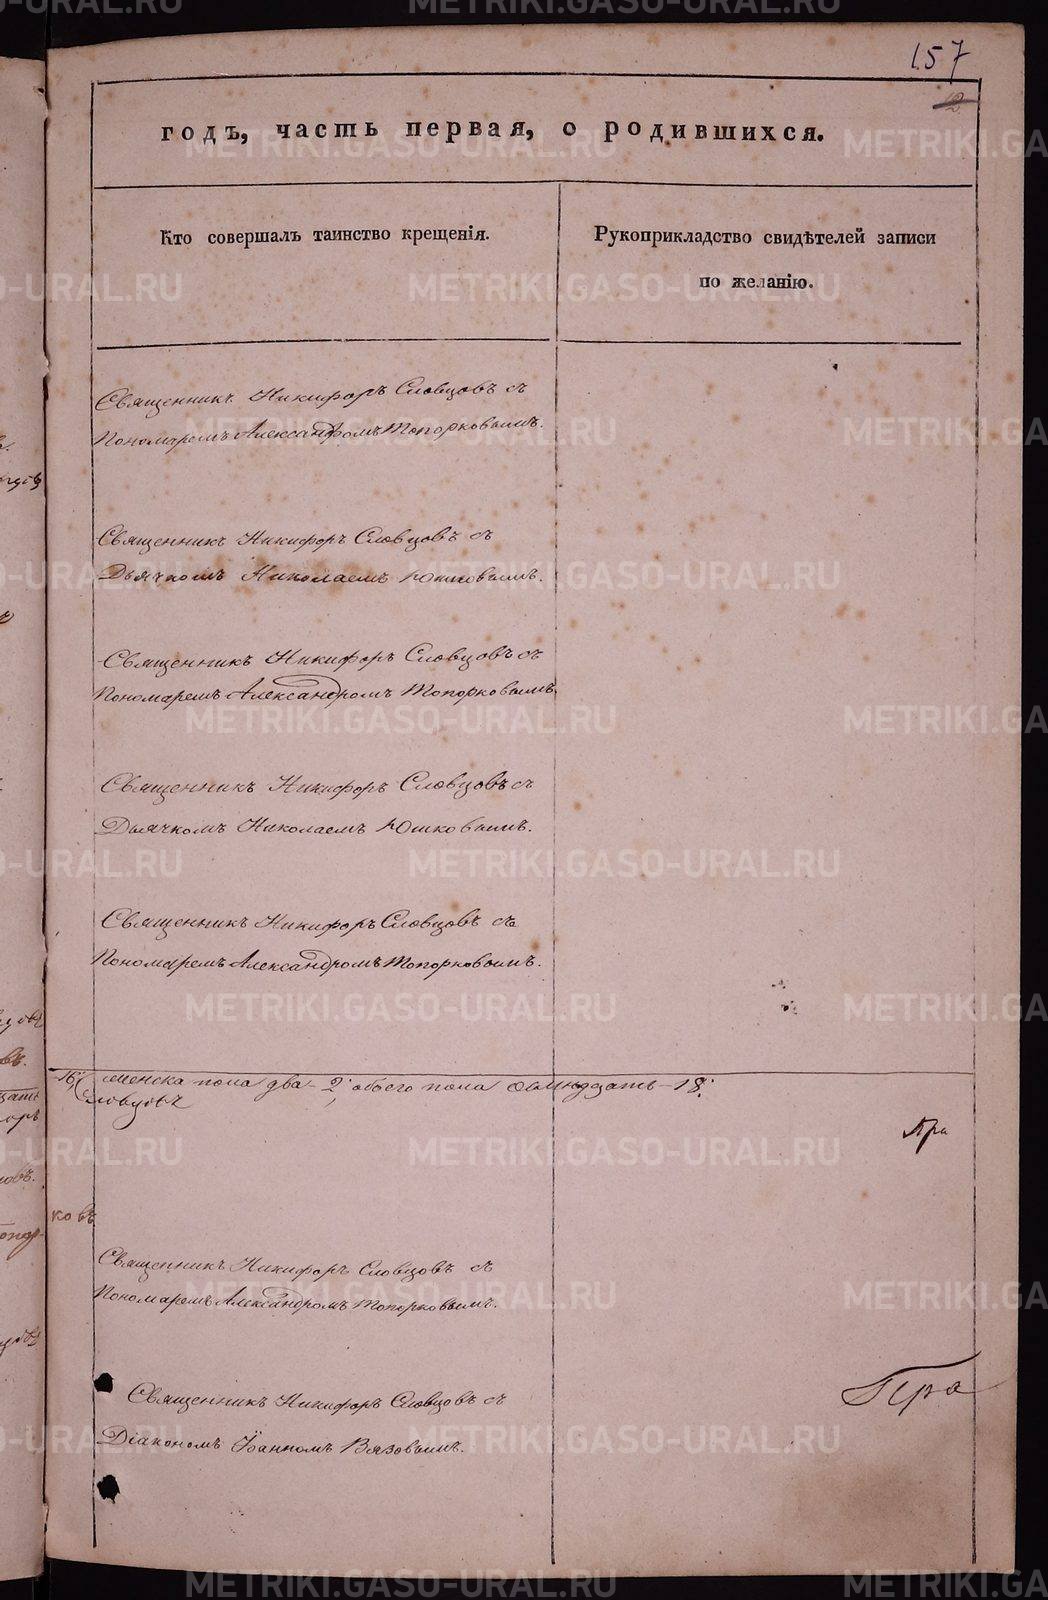 157
12
годъ, часть первая, о родившихся.
Кто совершалъ таинство крещенія.
Рукоприкладство свидѣтелей записи
по желанію.
Священникъ Никифоръ Словцовъ съ
Пономаремъ Александромъ Топорковымъ.
Священникъ Никифоръ Словцовъ съ
Дьячкомъ Николаемъ Юшковымъ.
Священникъ Никифоръ Словцовъ съ
Пономаремъ Александромъ Топорковымъ.
Священникъ Никифоръ Словцовъ съ
Дьячкомъ Николаемъ Юшковымъ.
Священникъ Никифоръ Словцовъ съ
Пономаремъ Александромъ Топорковымъ.
16, женска пола два 2, обоего пола осмнадцать 18.
Словцовъ
Пра
ковъ
Священникъ Никифоръ Словцовъ съ
Пономаремъ Александромъ Топорковымъ.
Священникъ Никифоръ Словцовъ съ
Діакономъ Іоанномъ Вязовымъ.
METRIKI.GASO-URAL.RU